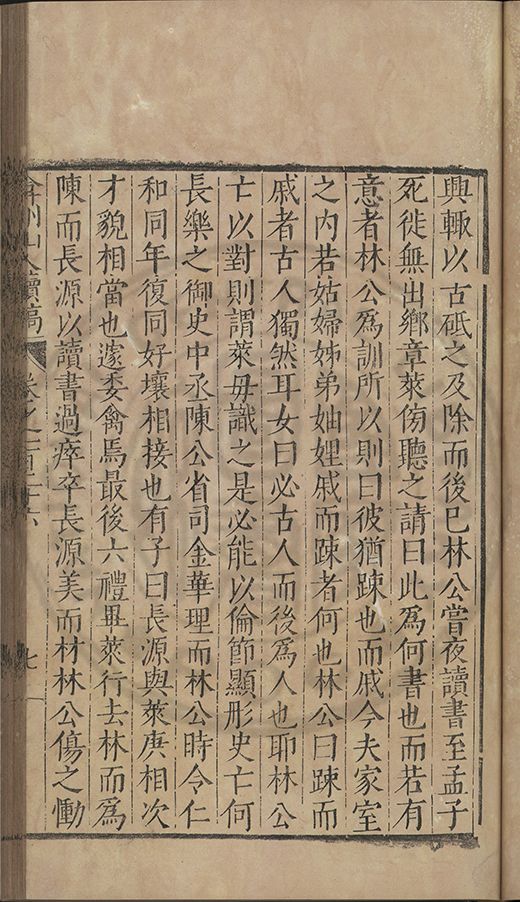 興輙以古砥之及除而後巳林公嘗夜讀書至孟子
死徙無出鄉章萊㑄聽之請曰此爲何書也而若有
意者林公爲訓所以則曰彼猶踈也而戚今夫家室
之內若姑婦姊弟妯娌戚而踈者何也林公曰踈而
戚者古人獨然耳女曰必古人而後爲人也耶林公
亡以對則謂萊毋識之是必能以倫節顯形史亡何
長樂之御史中丞陳公省司金華理而林公時令仁
和同年復同好壤相接也有子曰長源與萊庚相次
才貌相當也遂委禽焉最後六禮畢萊行去林而爲
陳而長源以讀書過瘁卒長源美而材林公傷之慟
弇州山人續稿
卷之
七